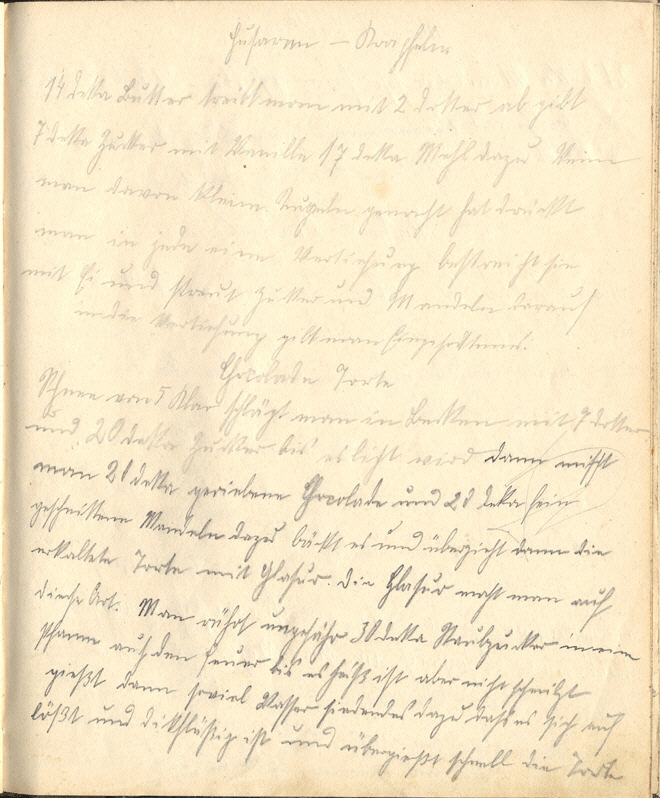 Husaren – Krapfeln
14 deka Butter treibt man mit 2 Dotter ab gibt
7 deka Zucker mit Vanille 17 deka Mehl dazu Wenn
man davon kleine Kugeln gemacht hat drückt
man in jede eine Vertiefung bestreicht sie
mit Ei und streut Zucker und Mandeln darauf
in die Vertiefung gibt man Eingesottenes.
Chocolade Torte
Schnee von 5 Klar schlägt man in Becken mit 7 Dotter
und 20 deka Zucker bis es licht wird dann mischt
man 20 deka geriebene Chocolade und 20 deka fein
geschnittene Mandeln dazu bäckt es und überzieht dann die
erkaltete Torte mit Glasur. Die Glasur macht man auf
diese Art. Man rührt ungefähr 30 deka Staubzucker in eine
Pfanne auf den Feuer bis es heiß ist aber nicht schmilzt
gießt dann soviel Wasser siedendes dazu daß es sich auf
lößt und dikflüßig ist und übergießt schnell die Torte